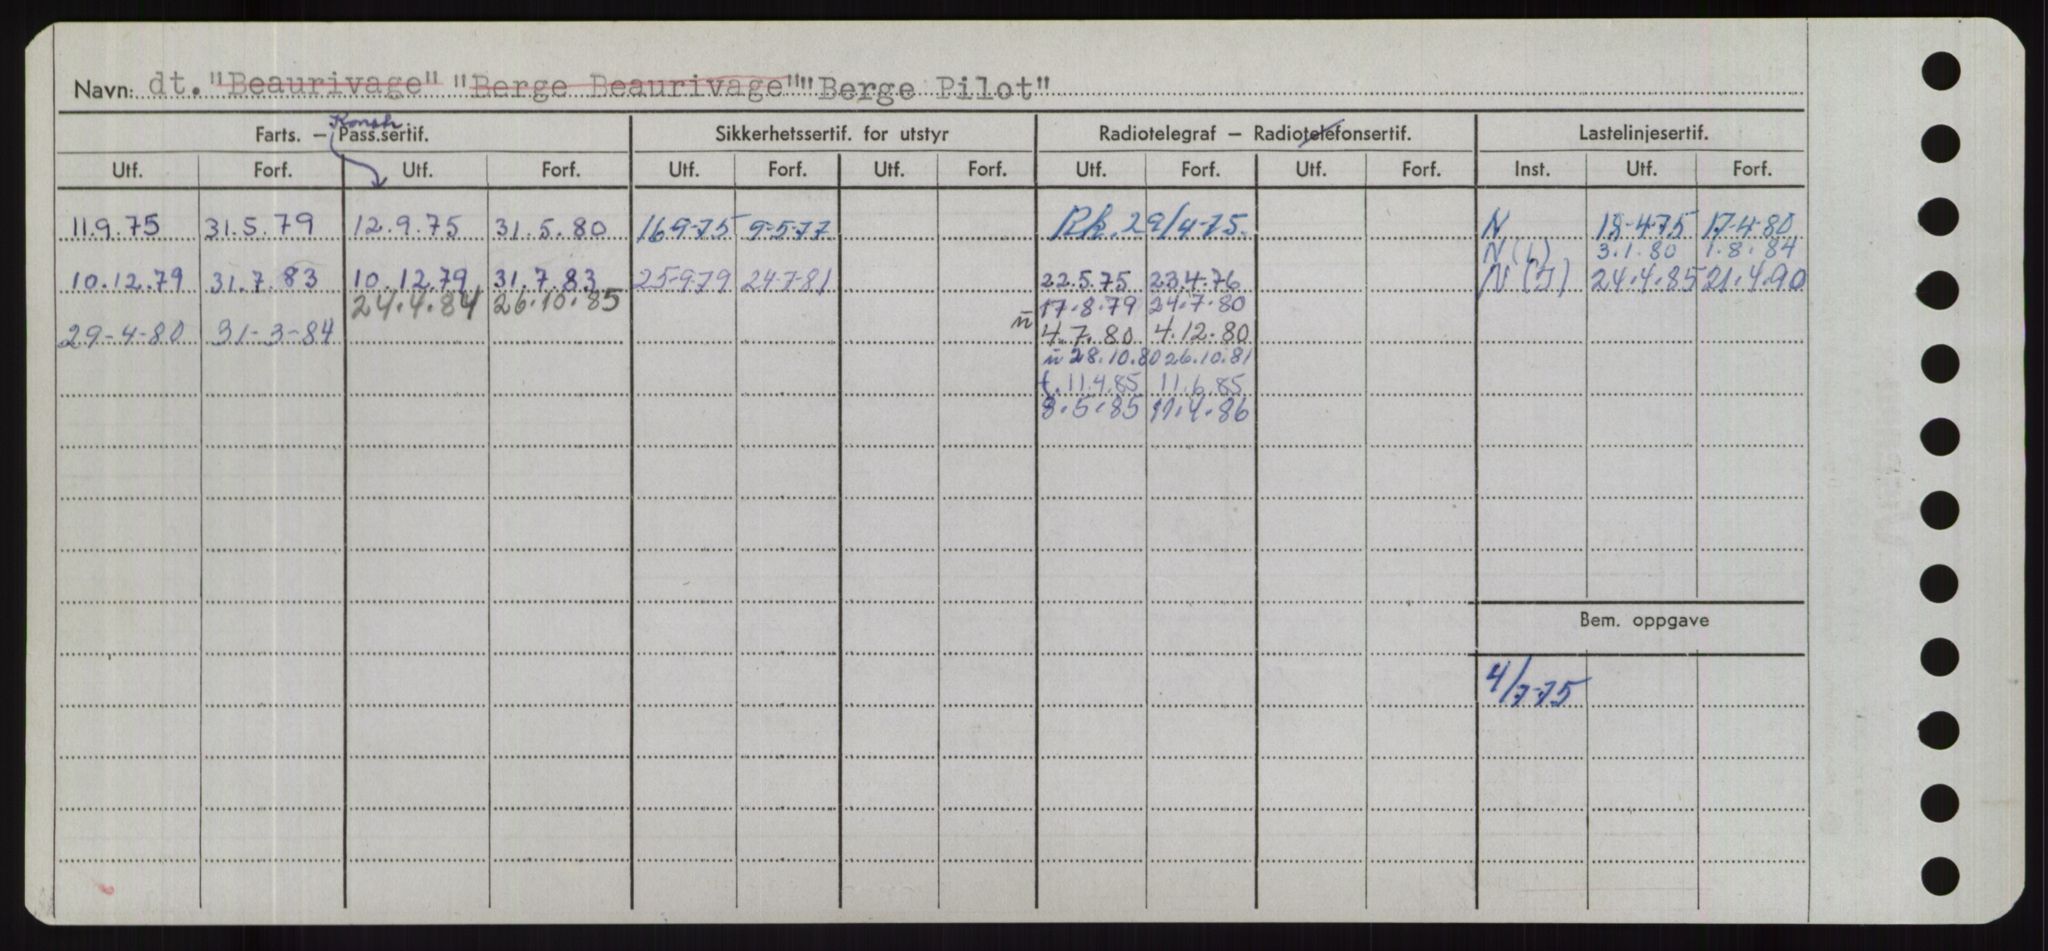 Navn: dt. "Beaurivage" "Berge Beaurivage" "Berge Pilot"
Konstr
Farts. – Pass.sertif. Sikkerhetssertif. for utstyr Radiotelegraf – Radiotelefonsertif. Lastelinjesertif.
Utf. Forf. Utf. Forf. Utf. Forf. Utf. Forf. Utf. Forf. Utf. Forf. Inst. Utf. Forf.
11.9.75 31.5.79 12.9.75 31.5.80 16-9-75 9-5-77 Rk. 29/4-75. N 18-4-75 17-4-80
N (L) 3.1.80 1.8.84
10.12.79 31.7.83 10.12.79 31.7.83 25-9-79 24-7-81 22.5.75 23.4.76 N (I) 24.4.85 21.4.90
24.4.84 26.10.85 17.8.79 24.7.80
29-4-80 31-3-84 ū 4.7.80 4.12.80
ū 28.10.80 26.10.81
f. 11.4.85 11.6.85
8.5.85 11.4.86
Bem. oppgave
4/7-75